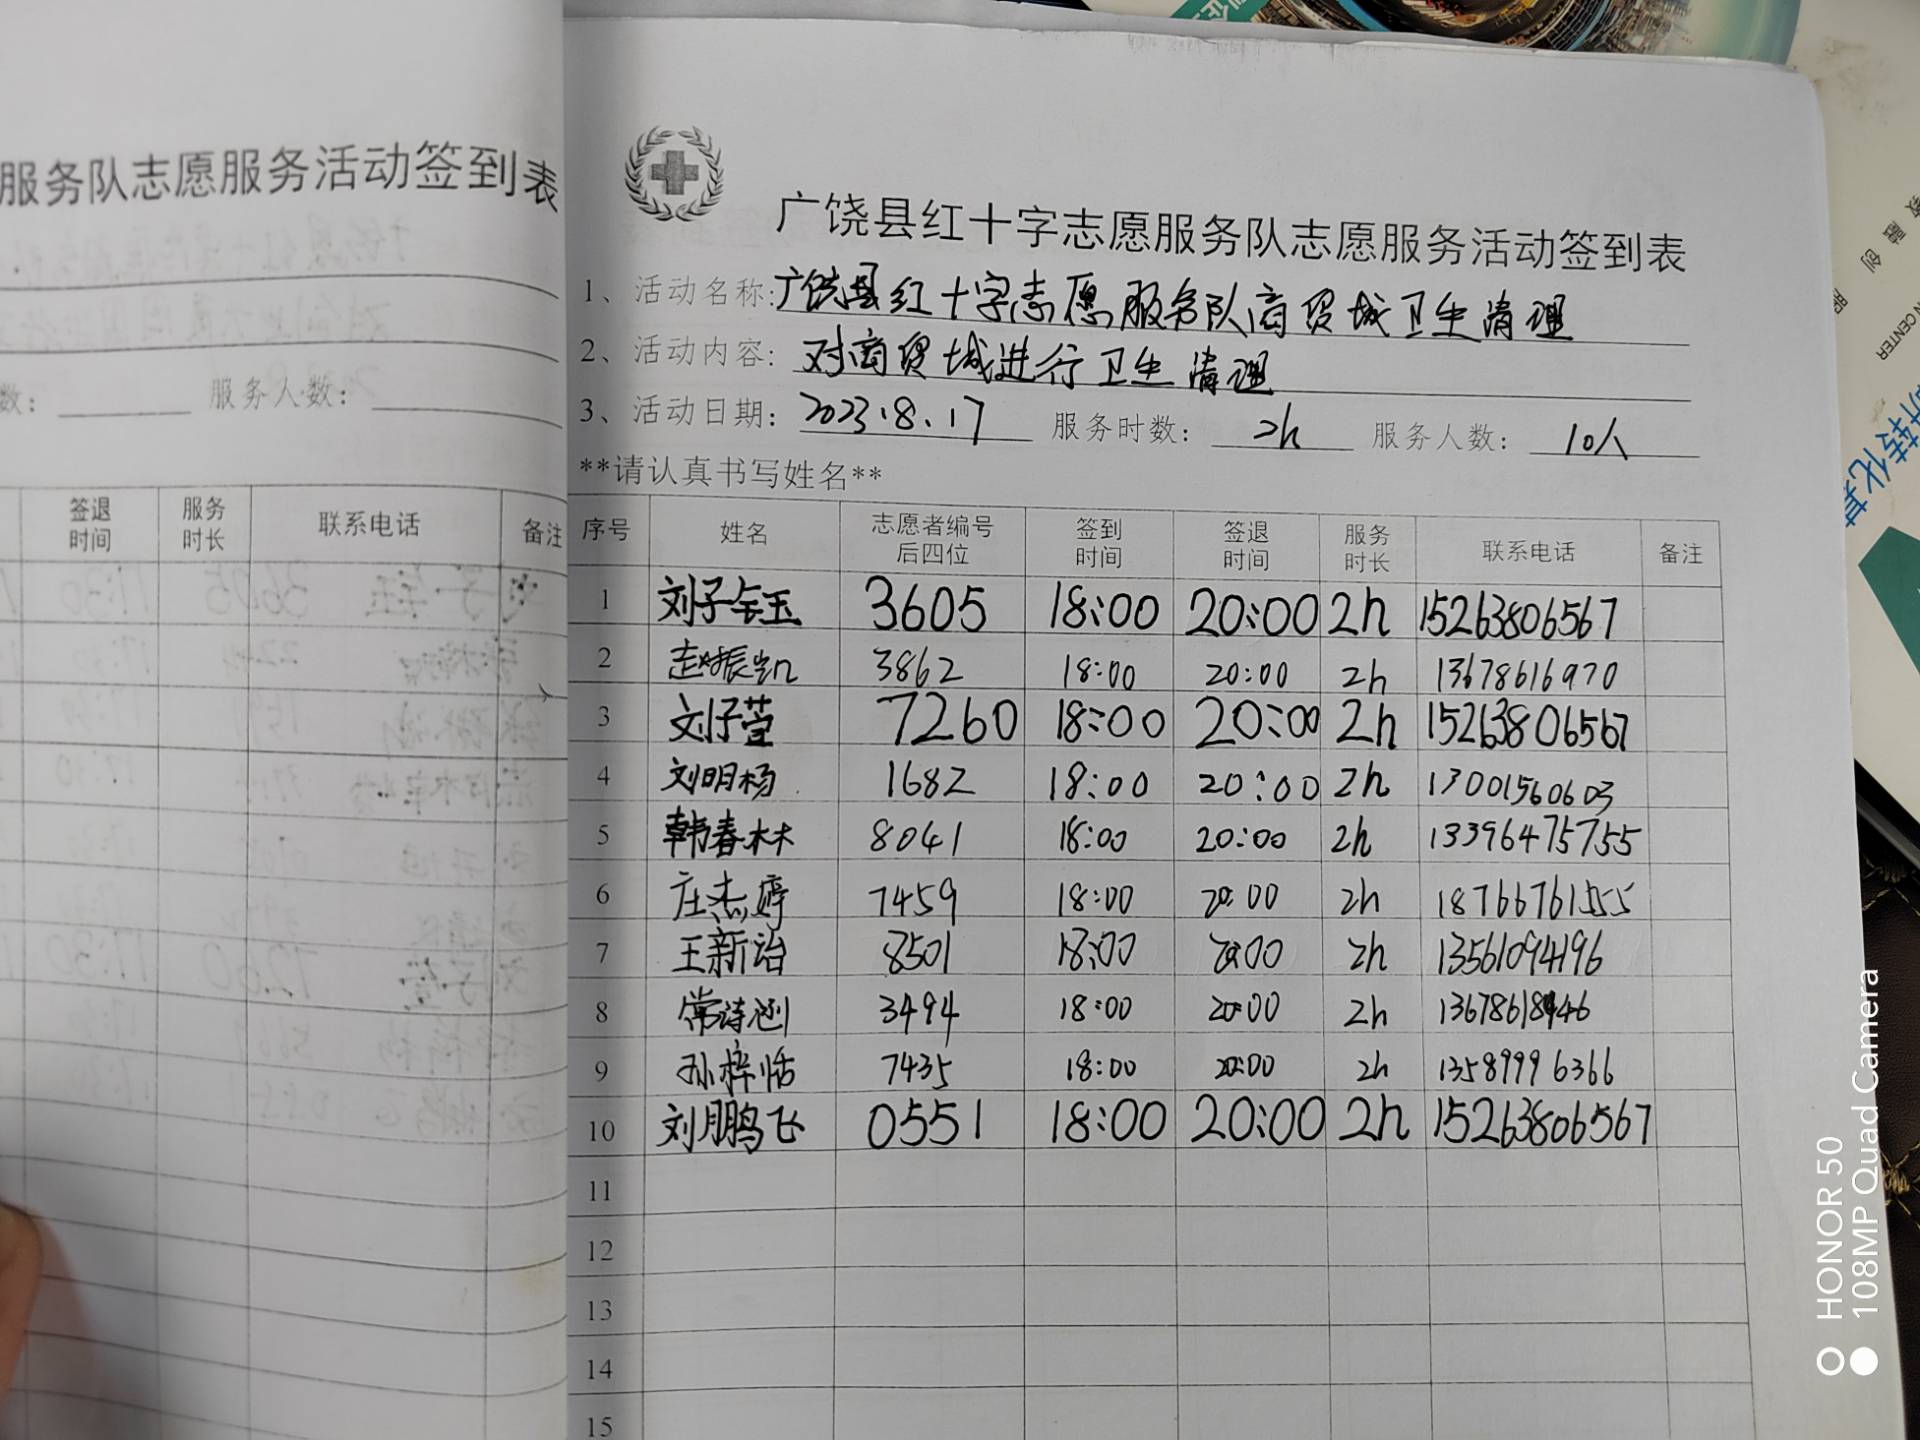 服务队志愿服务活动签到表
数: 服务人数:
签退时间 服务时长 联系电话 备注
广饶县红十字志愿服务队志愿服务活动签到表
1、活动名称:广饶县红十字志愿服务队商贸城卫生清理
2、活动内容: 对商贸城进行卫生清理
3、活动日期: 2023.8.17 服务时数: 2h 服务人数: 10人
**请认真书写姓名**
序号 姓名 志愿者编号后四位 签到时间 签退时间 服务时长 联系电话 备注
1 刘子钰 3605 18:00 20:00 2h 15263806567
2 赵振凯 3862 18:00 20:00 2h 13678616970
3 刘子萱 7260 18:00 20:00 2h 15263806567
4 刘明杨 1682 18:00 20:00 2h 13001560603
5 韩春林 8041 18:00 20:00 2h 13396475755
6 庄杰婷 7459 18:00 20:00 2h 18766761555
7 王新治 8501 18:00 20:00 2h 13561094196
8 常诗涵 3494 18:00 20:00 2h
9 孙梓恬 7435 18:00 20:00 2h 13589996366
10 刘鹏飞 0551 18:00 20:00 2h 15263806567
11
12
13
14
15
教融创
服
N CENTER
研转化基
HONOR 50
108MP Quad Camera